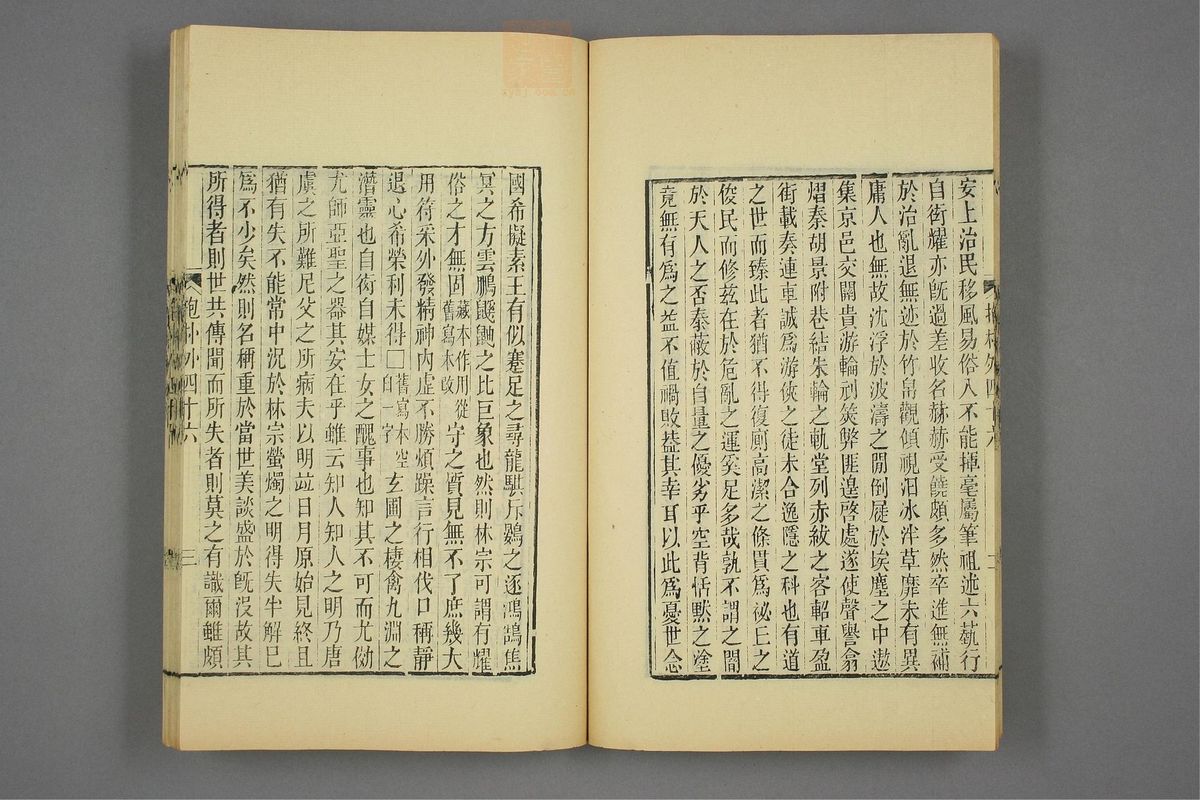 安上治民移風易俗入不能揮毫屬筆祖述六藝行
自衒耀亦旣過差收名赫赫受饒頗多然卒進無補
於治亂退無迹於竹帛觀傾視汨冰泮草靡未有異
庸人也無故沈浮於波濤之閒倒屣於埃塵之中遨
集京邑交關貴游輪刓筴弊匪遑啓處遂使聲譽翕
熠秦胡景附巷結朱輪之軌堂列赤紱之客軺車盈
街載奏連車誠爲游俠之徒未合逸隱之科也有道
之世而臻此者猶不得復廁高潔之條貫爲祕王之
俊民而修茲在於危亂之運奚足多哉孰不謂之闇
於天人之否泰蔽於自量之優劣乎空背恬黙之塗
竟無有爲之益不值禍敗葢其幸耳以此爲憂世念
外四十六
二
國希擬素王有似蹇足之尋龍騏斥鷃之逐鴻鵠焦
冥之方雲鵬鼷鼬之比巨象也然則林宗可謂有耀
俗之才無固藏本作用從舊寫本改守之質見無不了庶幾大
用符采外發精神內虛不勝煩躁言行相伐口稱靜
退心希榮利未得□舊寫本空白一字玄圃之棲禽九淵之
潛靈也自衒自媒士女之醜事也知其不可而尤傚
尤師亞聖之器其安在乎雖云知人知人之明乃唐
虞之所難尼父之所病夫以明竝日月原始見終且
猶有失不能常中況於林宗螢燭之明得失半解已
爲不少矣然則名稱重於當世美談盛於旣沒故其
所得者則世共傳聞而所失者則莫之有識爾雖頗
抱朴外四十六
三